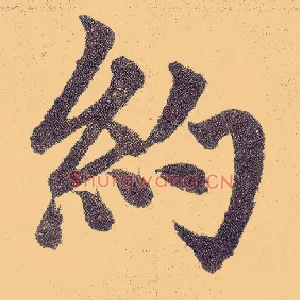 約
Shufawang.CN